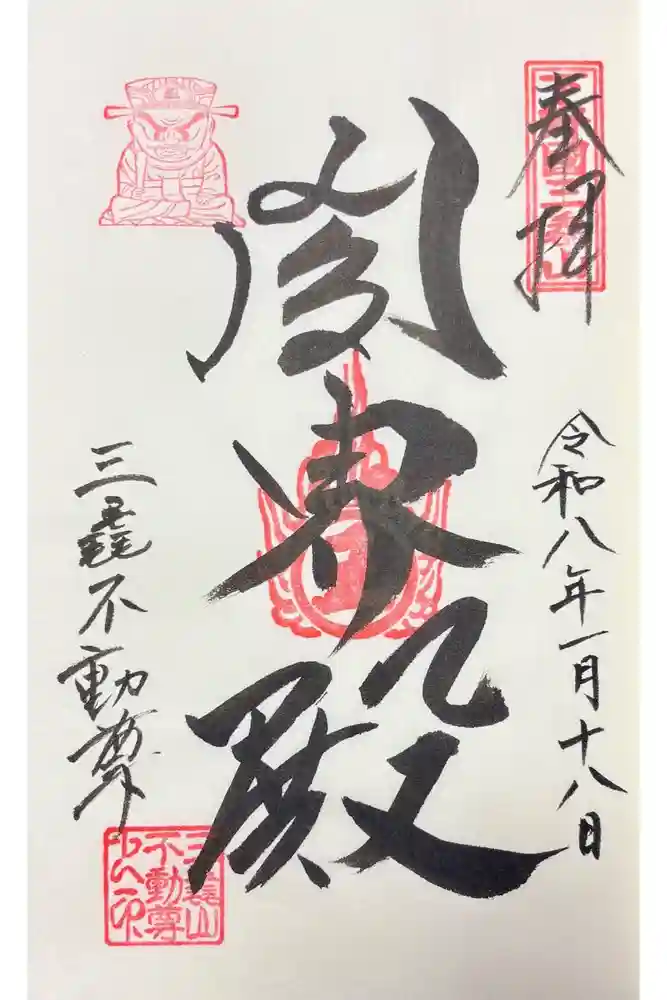 奉拝
令和八年一月十八日
閻界殿
三毳不動尊
三毳山
不動尊
之印